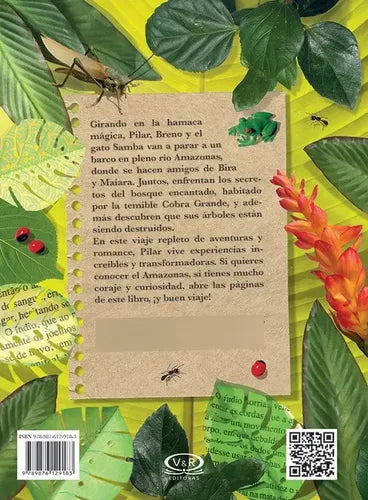 Girando en la hamaca
mágica, Pilar, Breno y el
gato Samba van a parar a un
barco en pleno río Amazonas,
donde se hacen amigos de Bira
y Maiara. Juntos, enfrentan los secre-
tos del bosque encantado, habitado
por la temible Cobra Grande, y ade-
más descubren que sus árboles están
siendo destruidos.
En este viaje repleto de aventuras y
romance, Pilar vive experiencias in-
creíbles y transformadoras. Si quieres
conocer el Amazonas, si tienes mucho
coraje y curiosidad, abre las páginas
de este libro, ¡y buen viaje!
O índio, que ao
V&R
EDITORAS
9789876129183